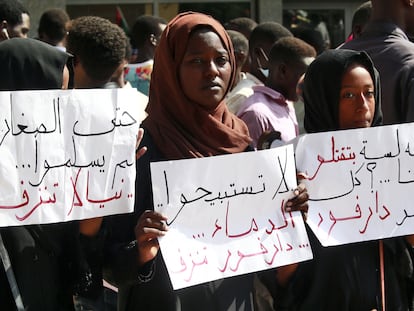 حتى الصغار
لم يسلموا...
نيالا تنزف
لا تستبيحوا
الدماء...
دارفور تنزف...
لسة بتقتلو
كل
دارفور